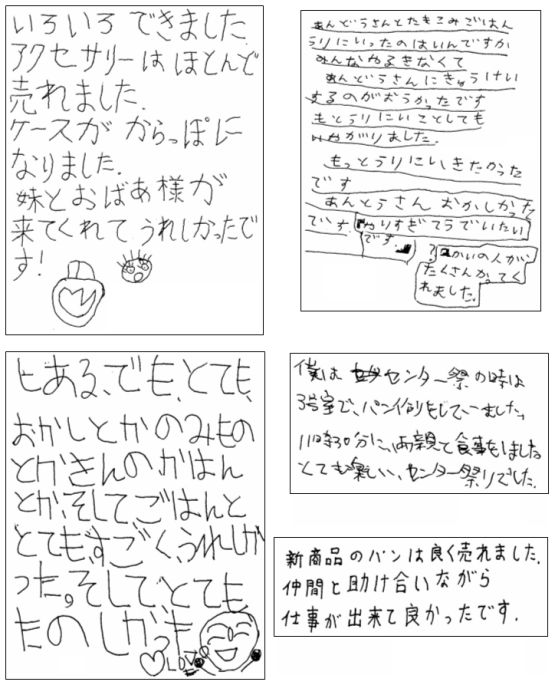 いろいろ できました
アクセサリーは ほとんど
売れました.
ケースが からっぽに
なりました.
妹とおばあ様が
来てくれて うれしかったで
す!
あんどうさんとたもこみごはん
うりにいったのはいんですか
みんなやるきなくて
あんどうさんにきゅうけい
するのがおうかったです
もとうりにいことしても
いやがりました.
もっとうりにいきたかった
です
あんとうさん おかしかった
です やりすぎてうでいたい
です.
かいの人が、
たくさんかってく
れました.
とある、でも、とても、
おかしとかのみもの
とかきんのかはん
とか、そしてごはんと
とても、すごく、うれしか
った。そして、とても、
たのしかった
LOVE
僕は センター祭の時は
3号室で、パン作りをしていました。
11時30分に、両親と食事をしました
とても楽しい、センター祭りでした.
新商品のパンは良く売れました.
仲間と助け合いながら
仕事が出来て良かったです.